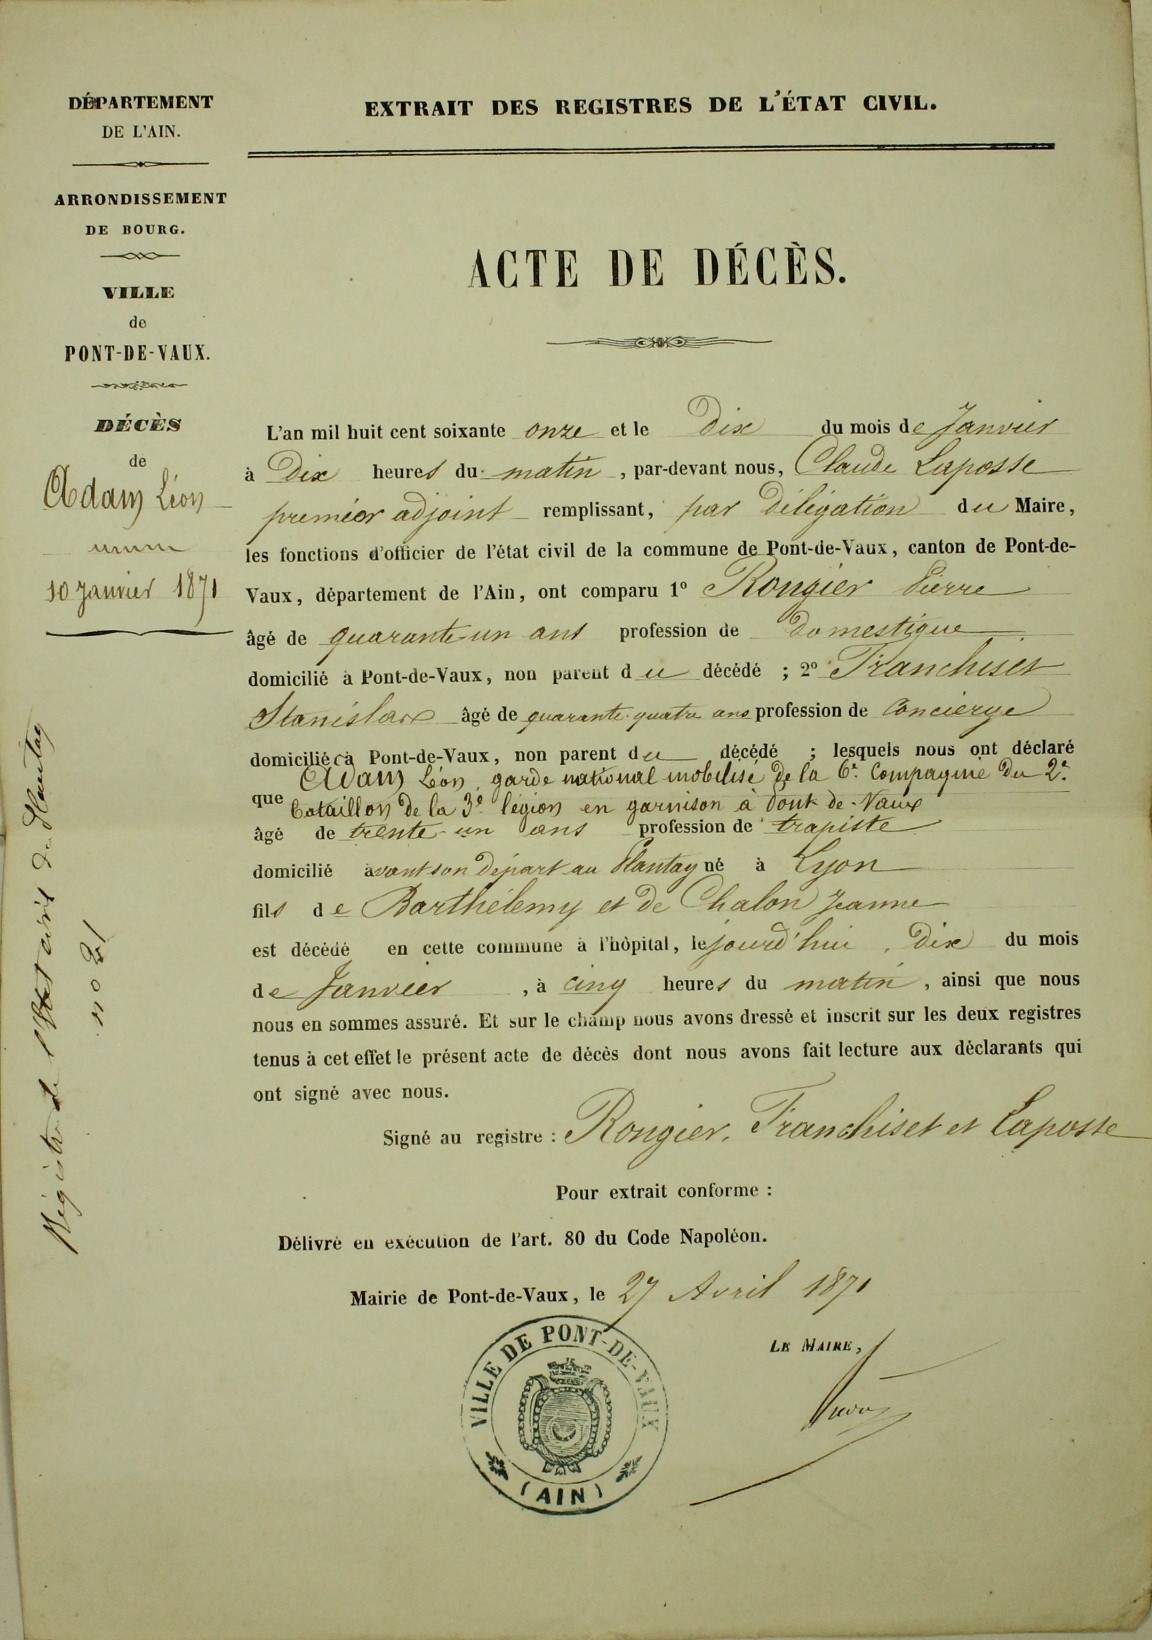 DÉPARTEMENT
DE L'AIN.
ARRONDISSEMENT
DE BOURG.
VILLE
de
PONT-DE-VAUX.
DÉCÈS
de
Adam Léon
10 Janvier 1871
Registre de l'Etat civil du Plantay
no 21
EXTRAIT DES REGISTRES DE L'ÉTAT CIVIL.
ACTE DE DÉCÈS.
L'an mil huit cent soixante onze et le Dix du mois de Janvier
à Dix heures du matin, par-devant nous, Claude Laposse
premier adjoint remplissant, par délégation du Maire,
les fonctions d'officier de l'état civil de la commune de Pont-de-Vaux, canton de Pont-de-
Vaux, département de l'Ain, ont comparu 1º Rongier Pierre
âgé de quarante-un ans profession de domestique
domicilié à Pont-de-Vaux, non parent du décédé ; 2º Franchiset
Stanislas âgé de quarante-quatre ans profession de Concierge
domicilié à Pont-de-Vaux, non parent du décédé ; lesquels nous ont déclaré
Adam Léon, garde national mobilisé de la 6e Compagnie du 2e
que bataillon de la 3e légion en garnison à Pont-de-Vaux
âgé de trente-un ans profession de trapiste
domicilié avant son départ au Plantay né à Lyon
fils de Barthélemy et de Chalon Jeanne
est décédé en cette commune à l'hôpital, le jourd'hui, Dix du mois
de Janvier, à cinq heures du matin, ainsi que nous
nous en sommes assuré. Et sur le champ nous avons dressé et inscrit sur les deux registres
tenus à cet effet le présent acte de décès dont nous avons fait lecture aux déclarants qui
ont signé avec nous.
Signé au registre : Rongier, Franchiset et Laposse
Pour extrait conforme :
Délivré en exécution de l'art. 80 du Code Napoléon.
Mairie de Pont-de-Vaux, le 27 Avril 1871
LE MAIRE,
VILLE DE PONT-DE-VAUX
(AIN)